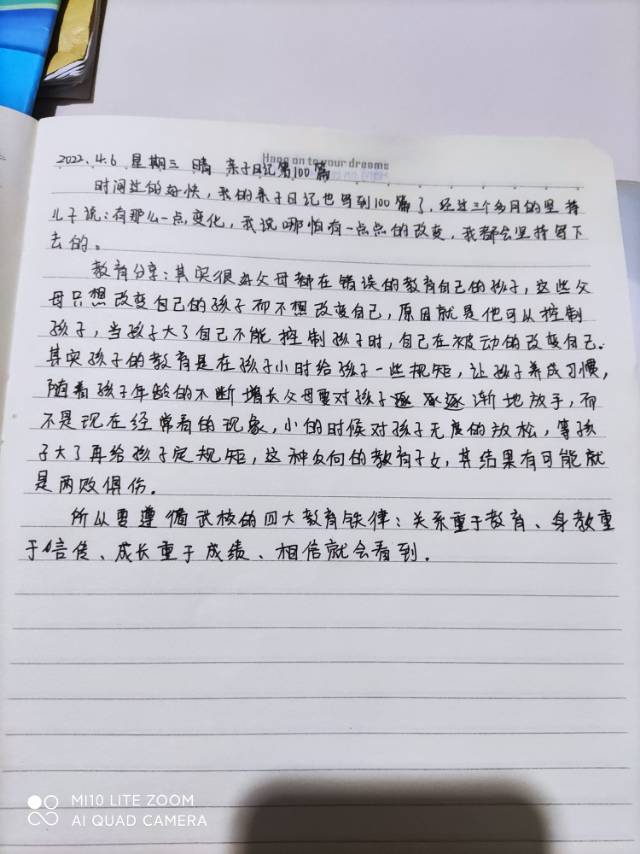 Hang on to your dreams
2022.4.6 星期三 晴 亲子日记第100篇
时间过的好快，我的亲子日记也写到100篇了，经过三个多月的坚持
儿子说：有那么一点变化，我说哪怕有一点点的改变，我都会坚持写下
去的。
教育分享：其实很多父母都在错误的教育自己的孩子，这些父
母只想改变自己的孩子而不想改变自己，原因就是他可以控制
孩子，当孩子大了自己不能控制孩子时，自己在被动的改变自己.
其实孩子的教育是在孩子小时给孩子一些规矩，让孩子养成习惯，
随着孩子年龄的不断增长父母要对孩子逐 逐渐地放手，而
不是现在经常看的现象，小的时候对孩子无度的放松，等孩
子大了再给孩子定规矩，这种反向的教育子女，其结果有可能就
是两败俱伤.
所以要遵循武校的四大教育铁律：关系重于教育、身教重
于言传、成长重于成绩、相信就会看到.
MI10 LITE ZOOM
AI QUAD CAMERA